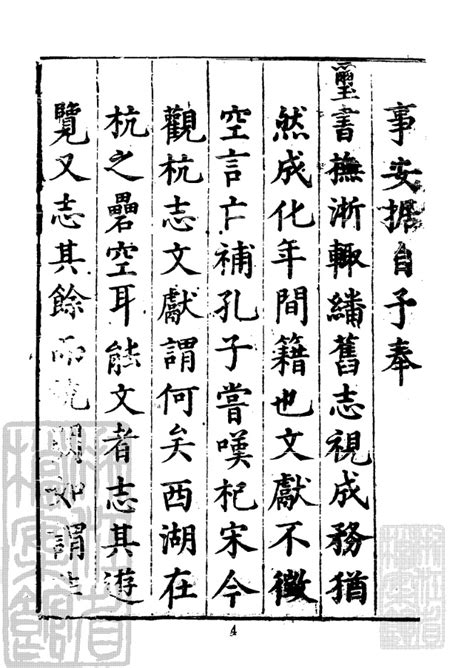 事安據自予奉
璽書撫浙輙繙舊志視成務猶
然成化年間籍也文獻不徵
空言亡補孔子嘗嘆杞宋今
觀杭志文獻謂何矣西湖在
杭之罍空耳能文者志其遊
覽又志其餘而
謂
4